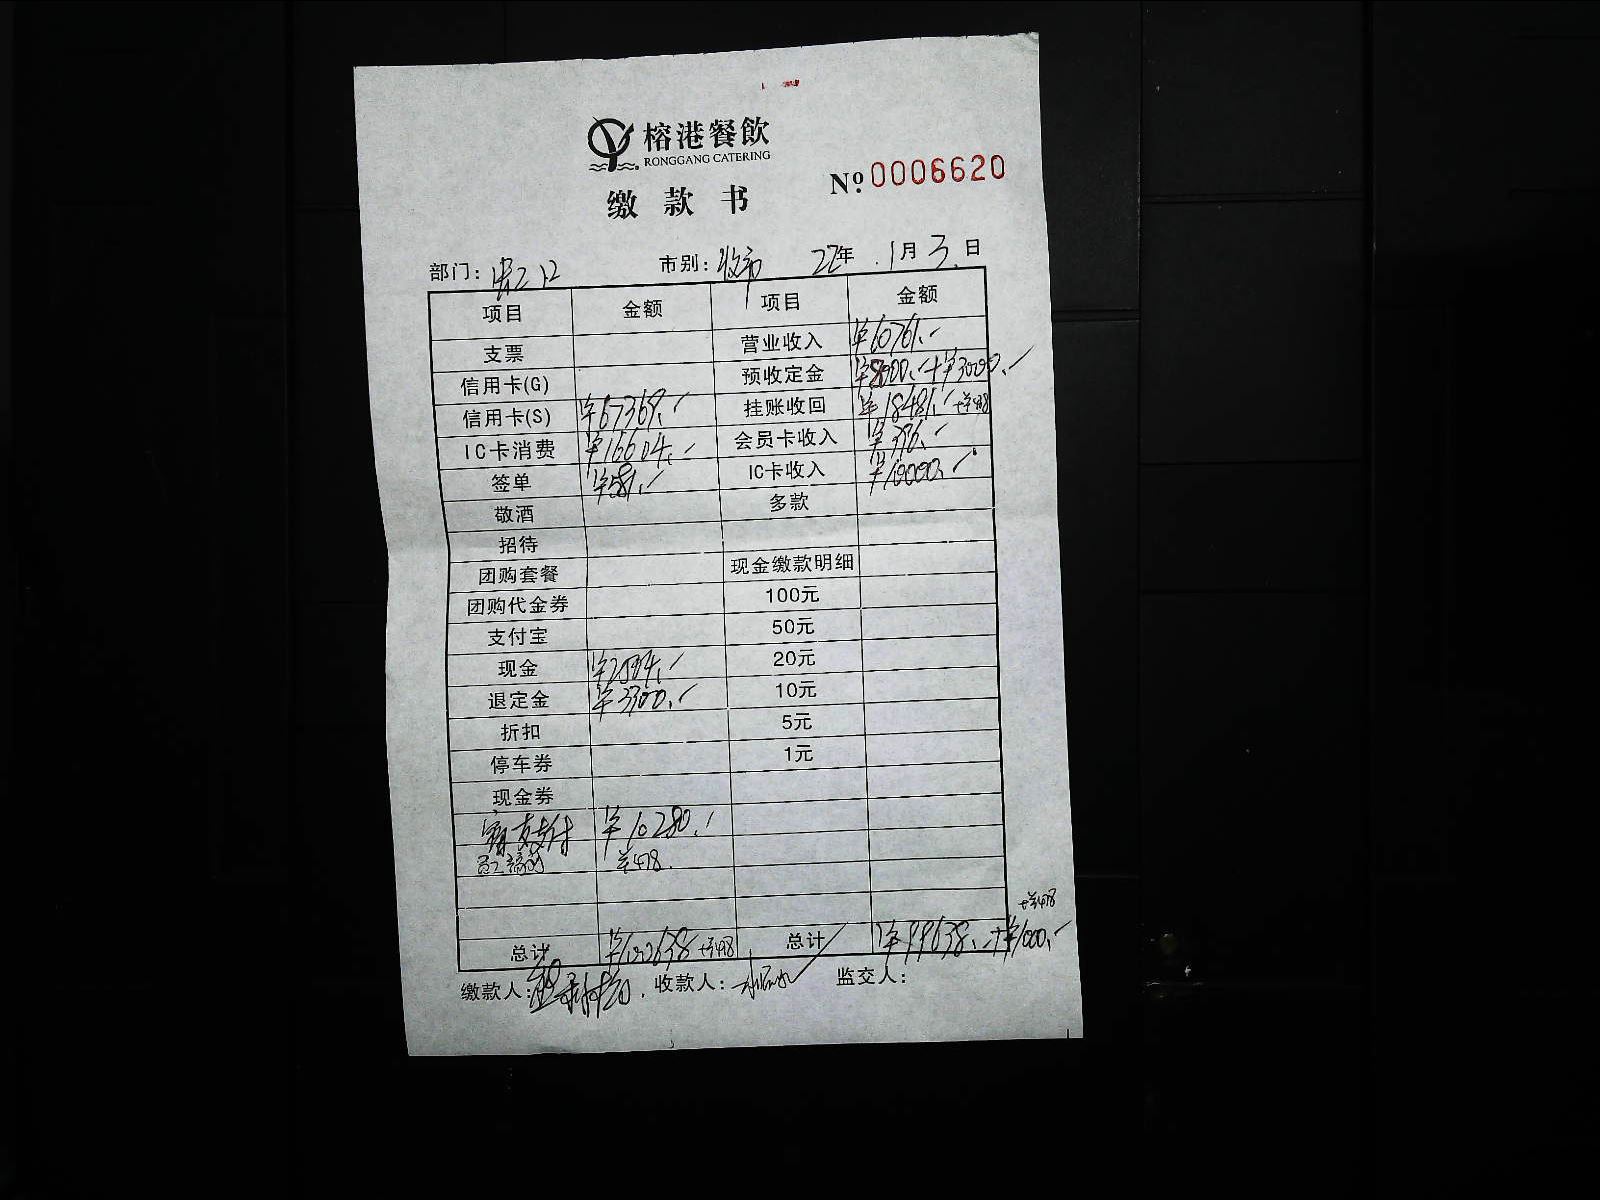 榕港餐飲
RONGGANG CATERING
缴款书
Nº 0006620
部门： 市别：收市 22年 1月 3日
项目 金额 项目 金额
支票 营业收入 ¥60761.
信用卡(G) 预收定金 ¥8000. +¥3000.
信用卡(S) ¥67369. 挂账收回 ¥18481. +¥498
IC卡消费 ¥16604. 会员卡收入 ¥396.
签单 ¥581. IC卡收入 ¥10000.
敬酒 多款
招待
团购套餐 现金缴款明细
团购代金券 100元
支付宝 50元
现金 20元
退定金 ¥3300. 10元
折扣 5元
停车券 1元
现金券
支付 ¥10280.
+¥498
总计 +¥498 总计 ¥99638.
缴款人： 收款人： 监交人：